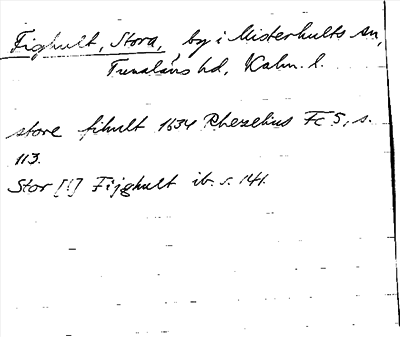 Fighult, Stora, by i Misterhults sn,
Tunaläns hd, Kalm. l.
store fihult 1634 Rhezelius Fc 5, s.
113.
Stor [!] Fijghult ib. s. 141.